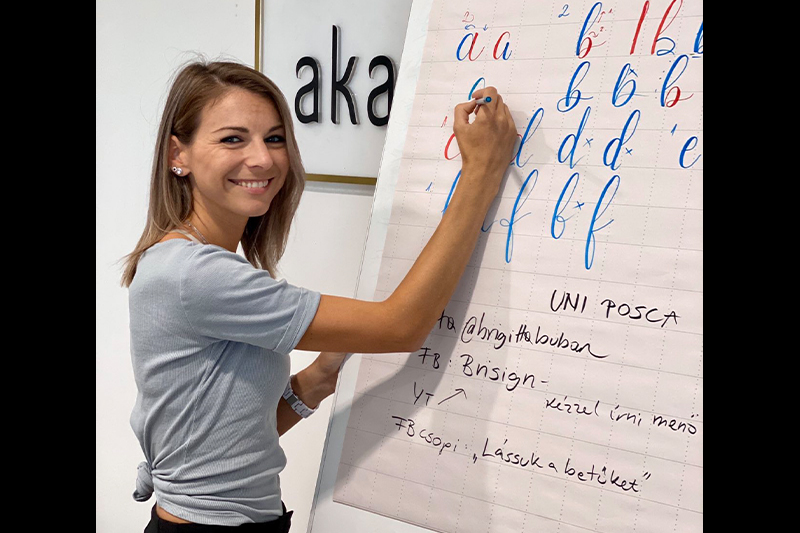 aka
2 a a 2 b l b b
b b b
d d d 1 e
1 f b f
UNI POSCA
@brigittabuban
FB: Brisign -
kézzel írni menő
YT
FB csopi: „Lássuk a betűket"